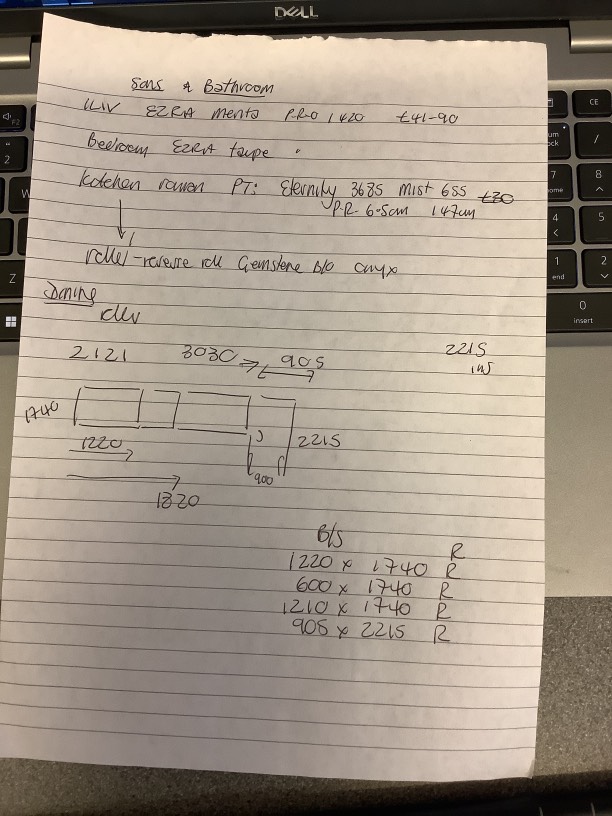 DELL
Sons & Bathroom
LLIV EZRA mento PRO 1420 £41-90
Bedroom EZRA taupe "
kitchen rowan PT: Eternity 3685 mist 655 £30
P.R. 6.5cm 147cm
roller reverse roll Gemstone b/o onyx
Dining
cllv
2121 3030 → 905 2215
ins
1740
1220 2215
900
1820
B/S
R
1220 x 1740 R
600 x 1740 R
1210 x 1740 R
905 x 2215 R